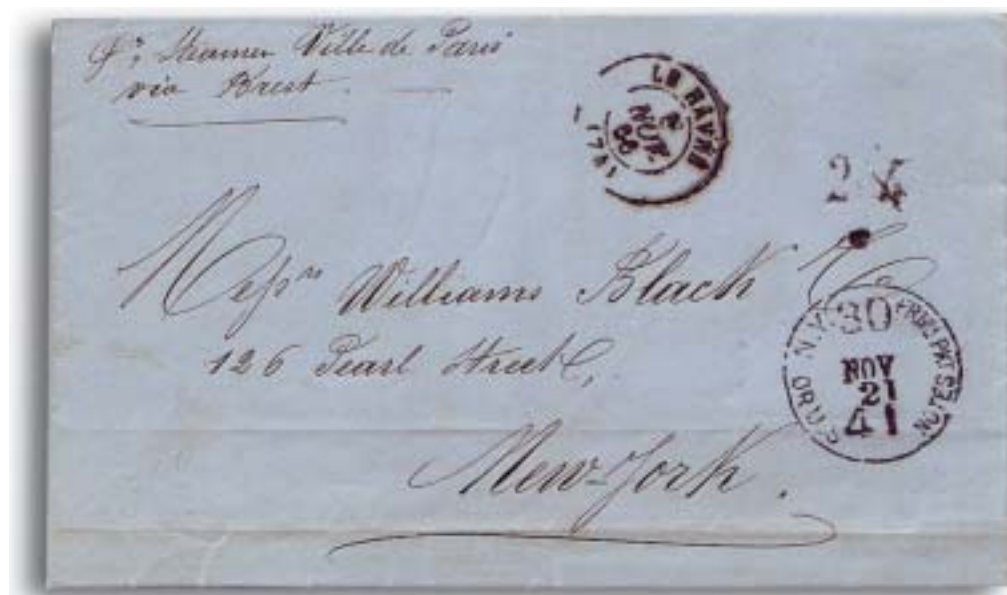 pr. Steamer Ville de Paris
via Brest.
LE HAVRE
NOV.
66
(74)
Messrs Williams Black & Co
126 Pearl Street,
New-York.
N.Y. 30 FRENCH PKT
NOV
21
41
OR U.S. NOTES